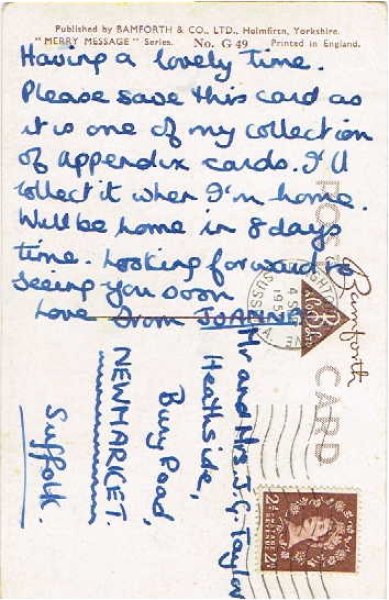 Published by BAMFORTH & CO., LTD., Holmfirth, Yorkshire.
"MERRY MESSAGE" Series. No. G 49 Printed in England.
Having a lovely time.
Please save this card as
it is one of my collection
of appendix cards. I'll
collect it when I'm home.
Will be home in 8 days
time. Looking forward to
seeing you soon
Love from JOANNA
Mr and Mrs J.G. Taylor
Heathside,
Bury Road,
NEWMARKET.
Suffolk.
POST CARD
Bamforth
SUSSEX
2½D POSTAGE 2½D